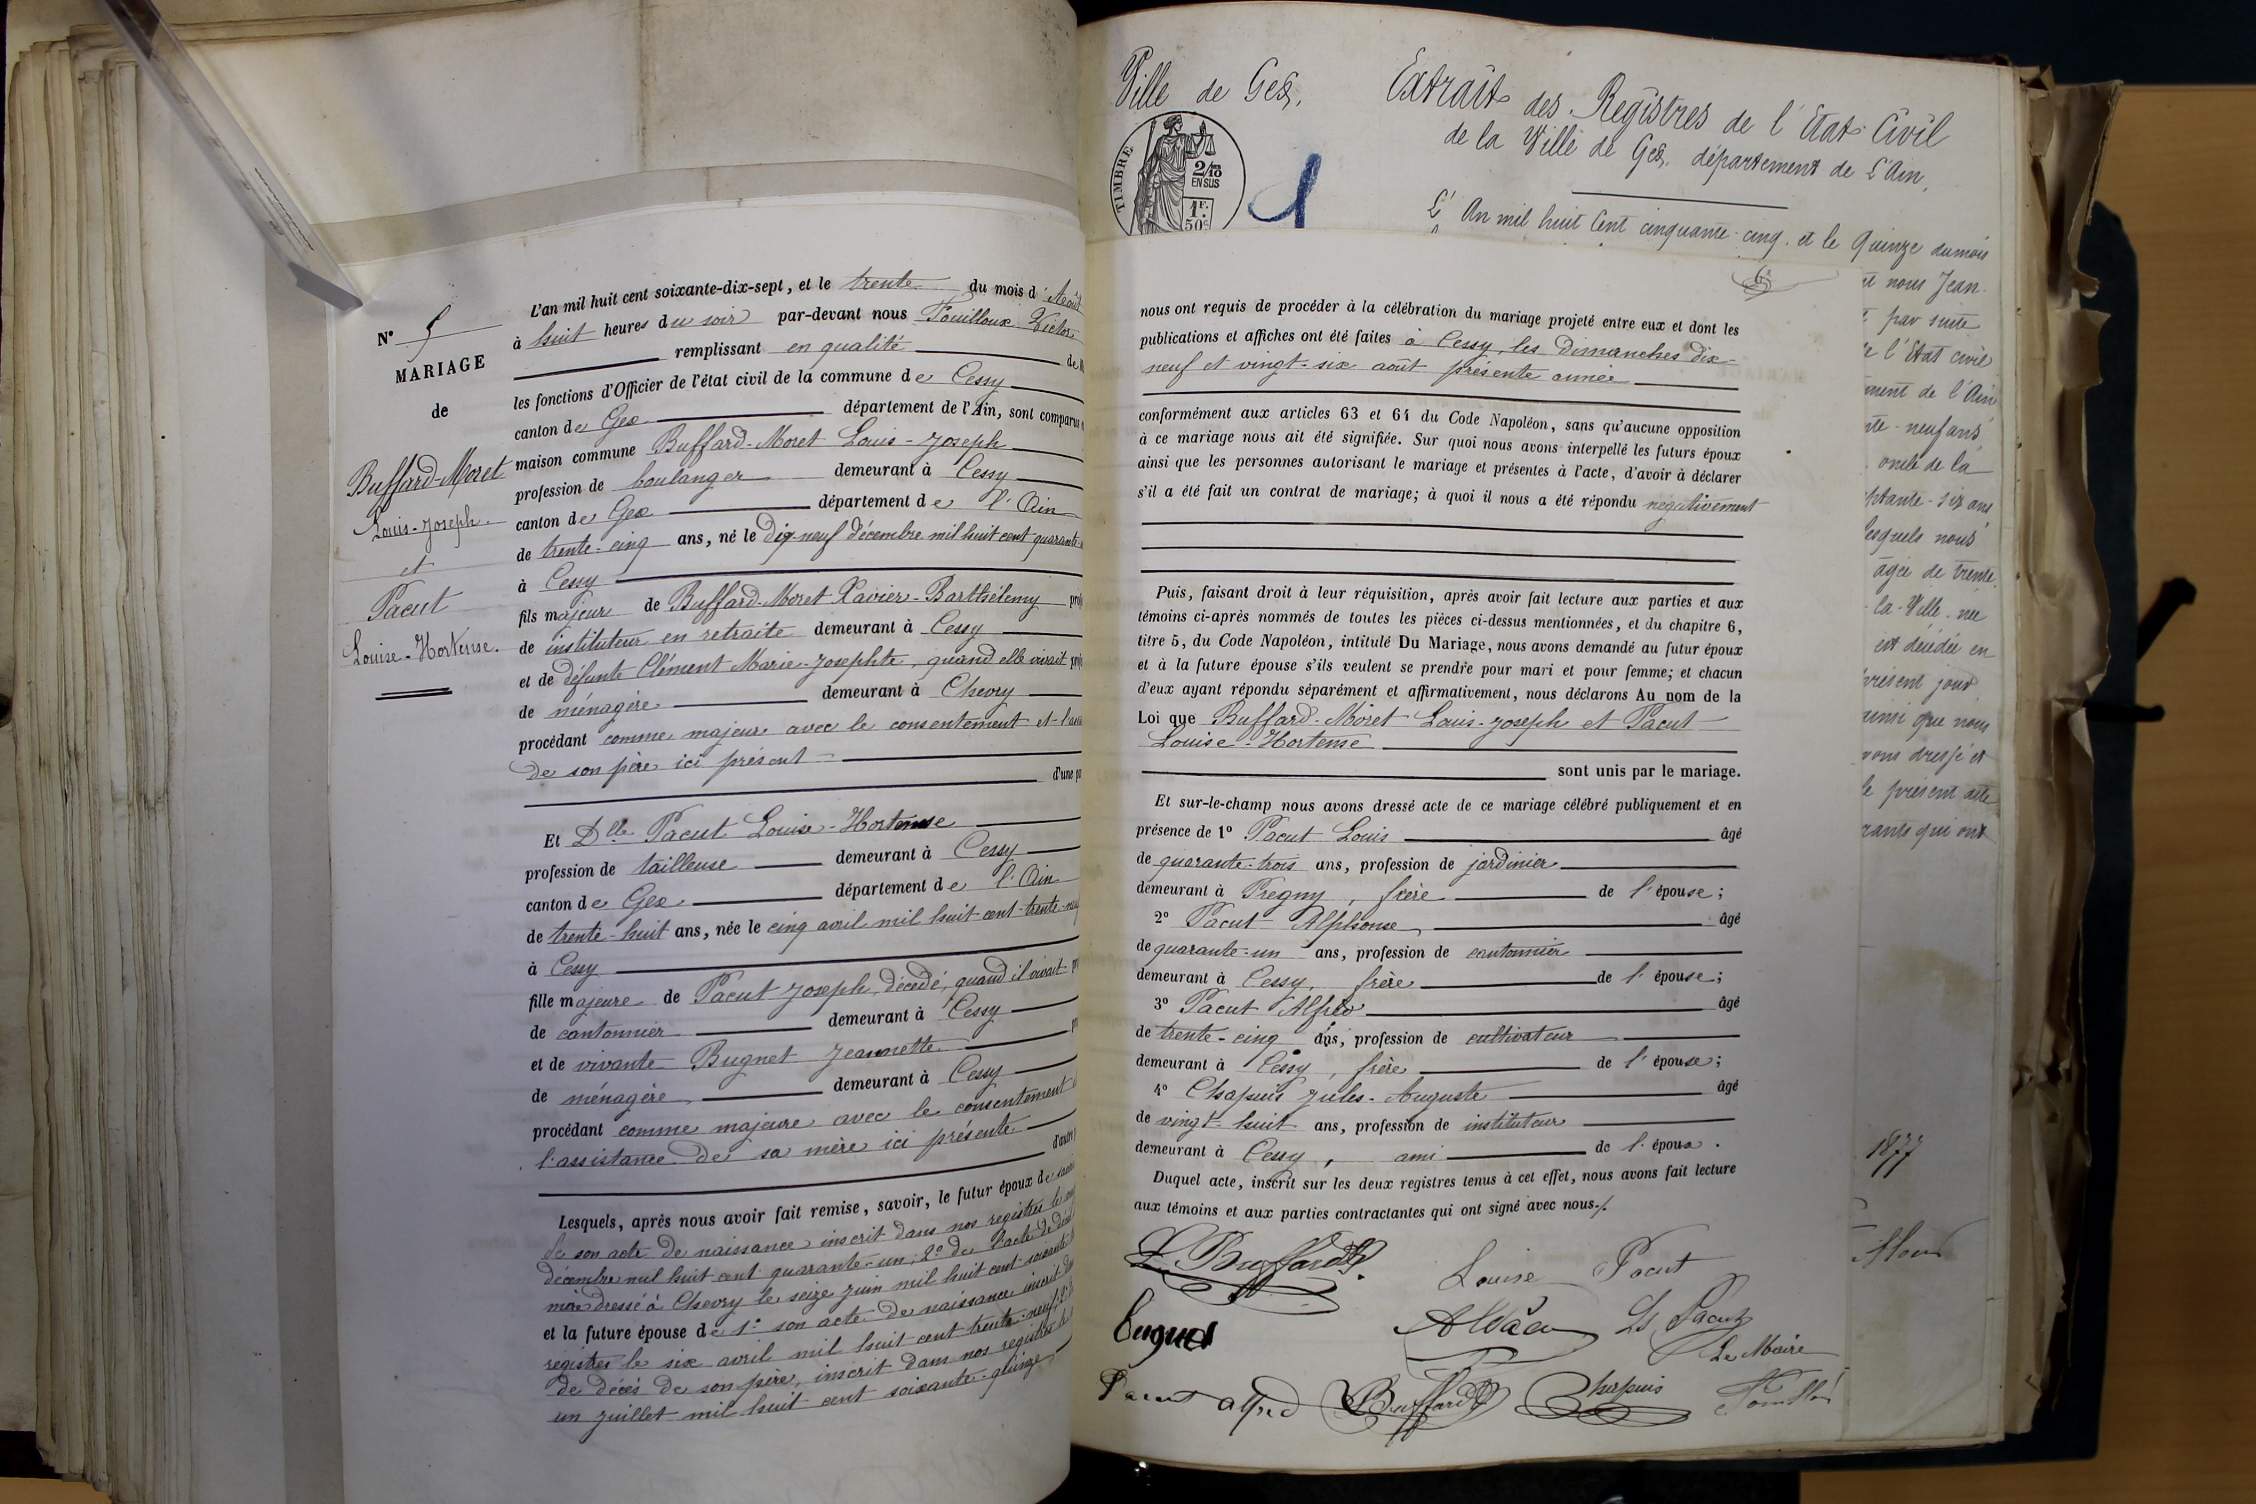 N° 5
MARIAGE
de
Buffard-Moret
Louis-Joseph.
et
Pacut
Louise-Hortense.
L'an mil huit cent soixante-dix-sept, et le trente du mois d'Août
à huit heures du soir par-devant nous Fouilloux Victor
remplissant en qualité de
les fonctions d'Officier de l'état civil de la commune de Cessy
canton de Gex département de l'Ain, sont comparus
maison commune Buffard-Moret Louis-Joseph
profession de boulanger demeurant à Cessy
canton de Gex département de l'Ain
de trente-cinq ans, né le dix-neuf décembre mil huit cent quarante
à Cessy
fils majeur de Buffard-Moret Xavier-Barthélemy
de instituteur en retraite demeurant à Cessy
et de défunte Clément Marie-Josephte, quand elle vivait
de ménagère demeurant à Chevry
procédant comme majeur avec le consentement et
de son père ici présent
d'une
Et Dlle Pacut Louise-Hortense
profession de tailleuse demeurant à Cessy
canton de Gex département de l'Ain
de trente-huit ans, née le cinq avril mil huit cent trente-neuf
à Cessy
fille majeure de Pacut Joseph, décédé, quand il vivait
de cantonnier demeurant à Cessy
et de vivante Bugnet Jeannette
de ménagère demeurant à Cessy
procédant comme majeure avec le consentement
l'assistance de sa mère ici présente
d'autre
Lesquels, après nous avoir fait remise, savoir, le futur époux de
de son acte de naissance inscrit dans nos registres le
décembre mil huit cent quarante-un; 2° de l'acte de
mère dressé à Chevry le seize juin mil huit cent soixante
et la future épouse de 1° son acte de naissance inscrit
registres le six avril mil huit cent trente-neuf;
de décès de son père, inscrit dans nos registres le
un juillet mil huit cent soixante-quinze
Ville de Gex.
Extrait des Registres de l'Etat Civil
de la Ville de Gex, département de L'Ain,
TIMBRE
2/10
EN SUS
1F.
50c
L'An mil huit Cent cinquante-cinq et le Quinze du mois
nous Jean
par suite
l'Etat civil
de l'Ain
neuf ans
oncle de la
six ans
lesquels nous
agée de trente
la Ville née
est décédée en
présent jour
ainsi que nous
dressé et
le présent acte
qui ont
1877
nous ont requis de procéder à la célébration du mariage projeté entre eux et dont les
publications et affiches ont été faites à Cessy, les Dimanches dix-
neuf et vingt-six août présente année
conformément aux articles 63 et 64 du Code Napoléon, sans qu'aucune opposition
à ce mariage nous ait été signifiée. Sur quoi nous avons interpellé les futurs époux
ainsi que les personnes autorisant le mariage et présentes à l'acte, d'avoir à déclarer
s'il a été fait un contrat de mariage; à quoi il nous a été répondu négativement
Puis, faisant droit à leur réquisition, après avoir fait lecture aux parties et aux
témoins ci-après nommés de toutes les pièces ci-dessus mentionnées, et du chapitre 6,
titre 5, du Code Napoléon, intitulé Du Mariage, nous avons demandé au futur époux
et à la future épouse s'ils veulent se prendre pour mari et pour femme; et chacun
d'eux ayant répondu séparément et affirmativement, nous déclarons Au nom de la
Loi que Buffard-Moret Louis-Joseph et Pacut
Louise-Hortense
sont unis par le mariage.
Et sur-le-champ nous avons dressé acte de ce mariage célébré publiquement et en
présence de 1° Pacut Louis âgé
de quarante-trois ans, profession de jardinier
demeurant à Pregny, frère de l'épouse;
2° Pacut Alphonse âgé
de quarante-un ans, profession de cantonnier
demeurant à Cessy, frère de l'épouse;
3° Pacut Alfred âgé
de trente-cinq ans, profession de cultivateur
demeurant à Cessy, frère de l'épouse;
4° Chapuis Jules-Auguste âgé
de vingt-huit ans, profession de instituteur
demeurant à Cessy, ami de l'époux.
Duquel acte, inscrit sur les deux registres tenus à cet effet, nous avons fait lecture
aux témoins et aux parties contractantes qui ont signé avec nous./.
L. Buffard
Louise Pacut
Ls Pacut
Le Maire
Pacut alfred
Buffard
Chapuis